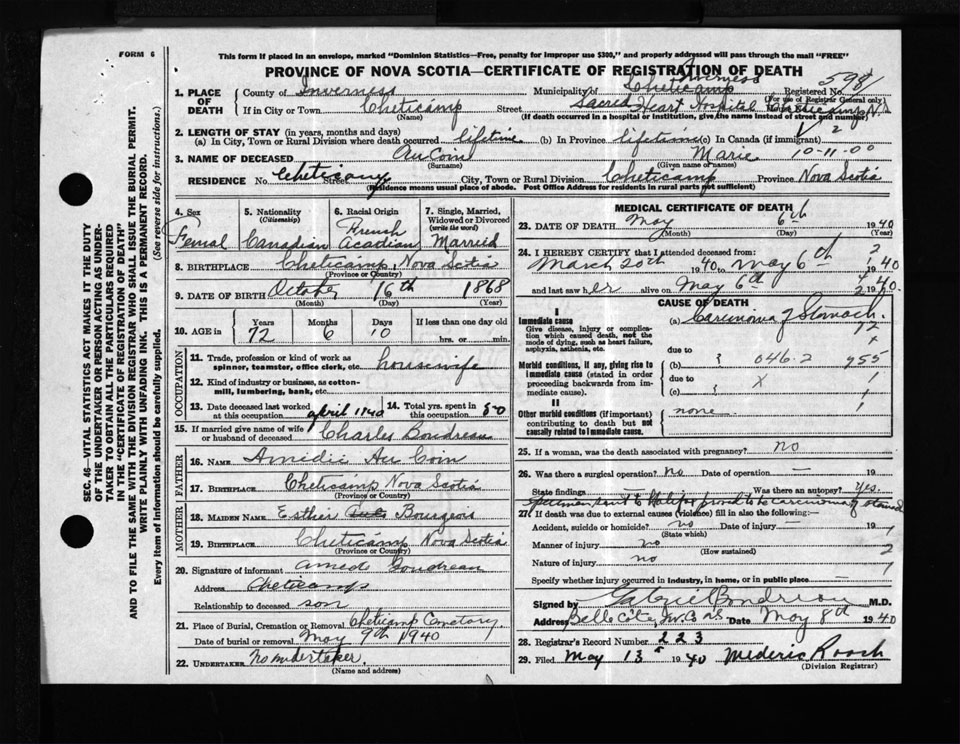 FORM 6
This form if placed in an envelope, marked "Dominion Statistics—Free, penalty for improper use $300," and properly addressed will pass through the mail "FREE"
PROVINCE OF NOVA SCOTIA—CERTIFICATE OF REGISTRATION OF DEATH
1. PLACE OF DEATH
County of Inverness
Municipality of Inverness Cheticamp
Registered No. 598
(For use of Registrar General only)
If in City or Town Cheticamp Street Sacred Heart Hospital Cheticamp N.S
(Name) (If death occurred in a hospital or institution, give the name instead of street and number)
2. LENGTH OF STAY (in years, months and days)
(a) In City, Town or Rural Division where death occurred lifetime (b) In Province lifetime (c) In Canada (if immigrant) 2
3. NAME OF DECEASED AuCoin Marie 10-11-00
(Surname) (Given name or names)
RESIDENCE No. Cheticamp Street City, Town or Rural Division Cheticamp Province Nova Scotia
(Residence means usual place of abode. Post Office Address for residents in rural parts not sufficient)
4. Sex Femal
5. Nationality (Citizenship) Canadian
6. Racial Origin French Acadian
7. Single, Married, Widowed or Divorced (write the word) Married
8. BIRTHPLACE Cheticamp, Nova Scotia
(Province or Country)
9. DATE OF BIRTH October 16th 1868
(Month) (Day) (Year)
10. AGE in Years 72 Months 6 Days 10 If less than one day old hrs. or min.
OCCUPATION
11. Trade, profession or kind of work as spinner, teamster, office clerk, etc. housewife
12. Kind of industry or business, as cotton-mill, lumbering, bank, etc.
13. Date deceased last worked at this occupation april 1940
14. Total yrs. spent in this occupation 50
15. If married give name of wife or husband of deceased Charles Boudreau
FATHER
16. NAME Amedii Au Coin
17. BIRTHPLACE Cheticamp Nova Scotia
(Province or Country)
MOTHER
18. MAIDEN NAME Esther Bourgeois
19. BIRTHPLACE Cheticamp Nova Scotia
(Province or Country)
20. Signature of informant Amede Boudreau
Address Cheticamp
Relationship to deceased son
21. Place of Burial, Cremation or Removal Cheticamp Cemetary
Date of burial or removal May 9th 1940
22. UNDERTAKER No undertaker
(Name and address)
MEDICAL CERTIFICATE OF DEATH
23. DATE OF DEATH May 6th 1940
(Month) (Day) (Year)
24. I HEREBY CERTIFY that I attended deceased from: 2
March 20th 1940 to May 6th 1940
and last saw her alive on May 6th 1940
CAUSE OF DEATH
I
Immediate cause
Give disease, injury or complication which caused death, not the mode of dying, such as heart failure, asphyxia, asthenia, etc.
(a) Carcinoma of Stomach.
due to
Morbid conditions, if any, giving rise to immediate cause (stated in order proceeding backwards from immediate cause).
(b) 046.2 955
due to X 1
(c) 1
II
Other morbid conditions (if important) contributing to death but not causally related to immediate cause.
none 1
25. If a woman, was the death associated with pregnancy? no
26. Was there a surgical operation? No Date of operation — 19
State findings Was there an autopsy? Yes.
specimen sent to Halifax proved to be carcinoma of stomach
27. If death was due to external causes (violence) fill in also the following:—
Accident, suicide or homicide? no Date of injury — 19 1
(State which)
Manner of injury no 2
(How sustained)
Nature of injury no 1
Specify whether injury occurred in industry, in home, or in public place —
Signed by Gabriel Boudreau M.D.
Address Belle Cote, Inv. Co N.S. Date May 8th 1940
28. Registrar's Record Number 223
29. Filed May 13 1940 Mederic Roach
(Division Registrar)
SEC. 46—VITAL STATISTICS ACT MAKES IT THE DUTY
OF THE UNDERTAKER OR PERSON ACTING AS UNDER-
TAKER TO OBTAIN ALL THE PARTICULARS REQUIRED
IN THE "CERTIFICATE OF REGISTRATION OF DEATH"
AND TO FILE THE SAME WITH THE DIVISION REGISTRAR WHO SHALL ISSUE THE BURIAL PERMIT.
WRITE PLAINLY WITH UNFADING INK. THIS IS A PERMANENT RECORD.
Every item of information should be carefully supplied. (See reverse side for instructions.)